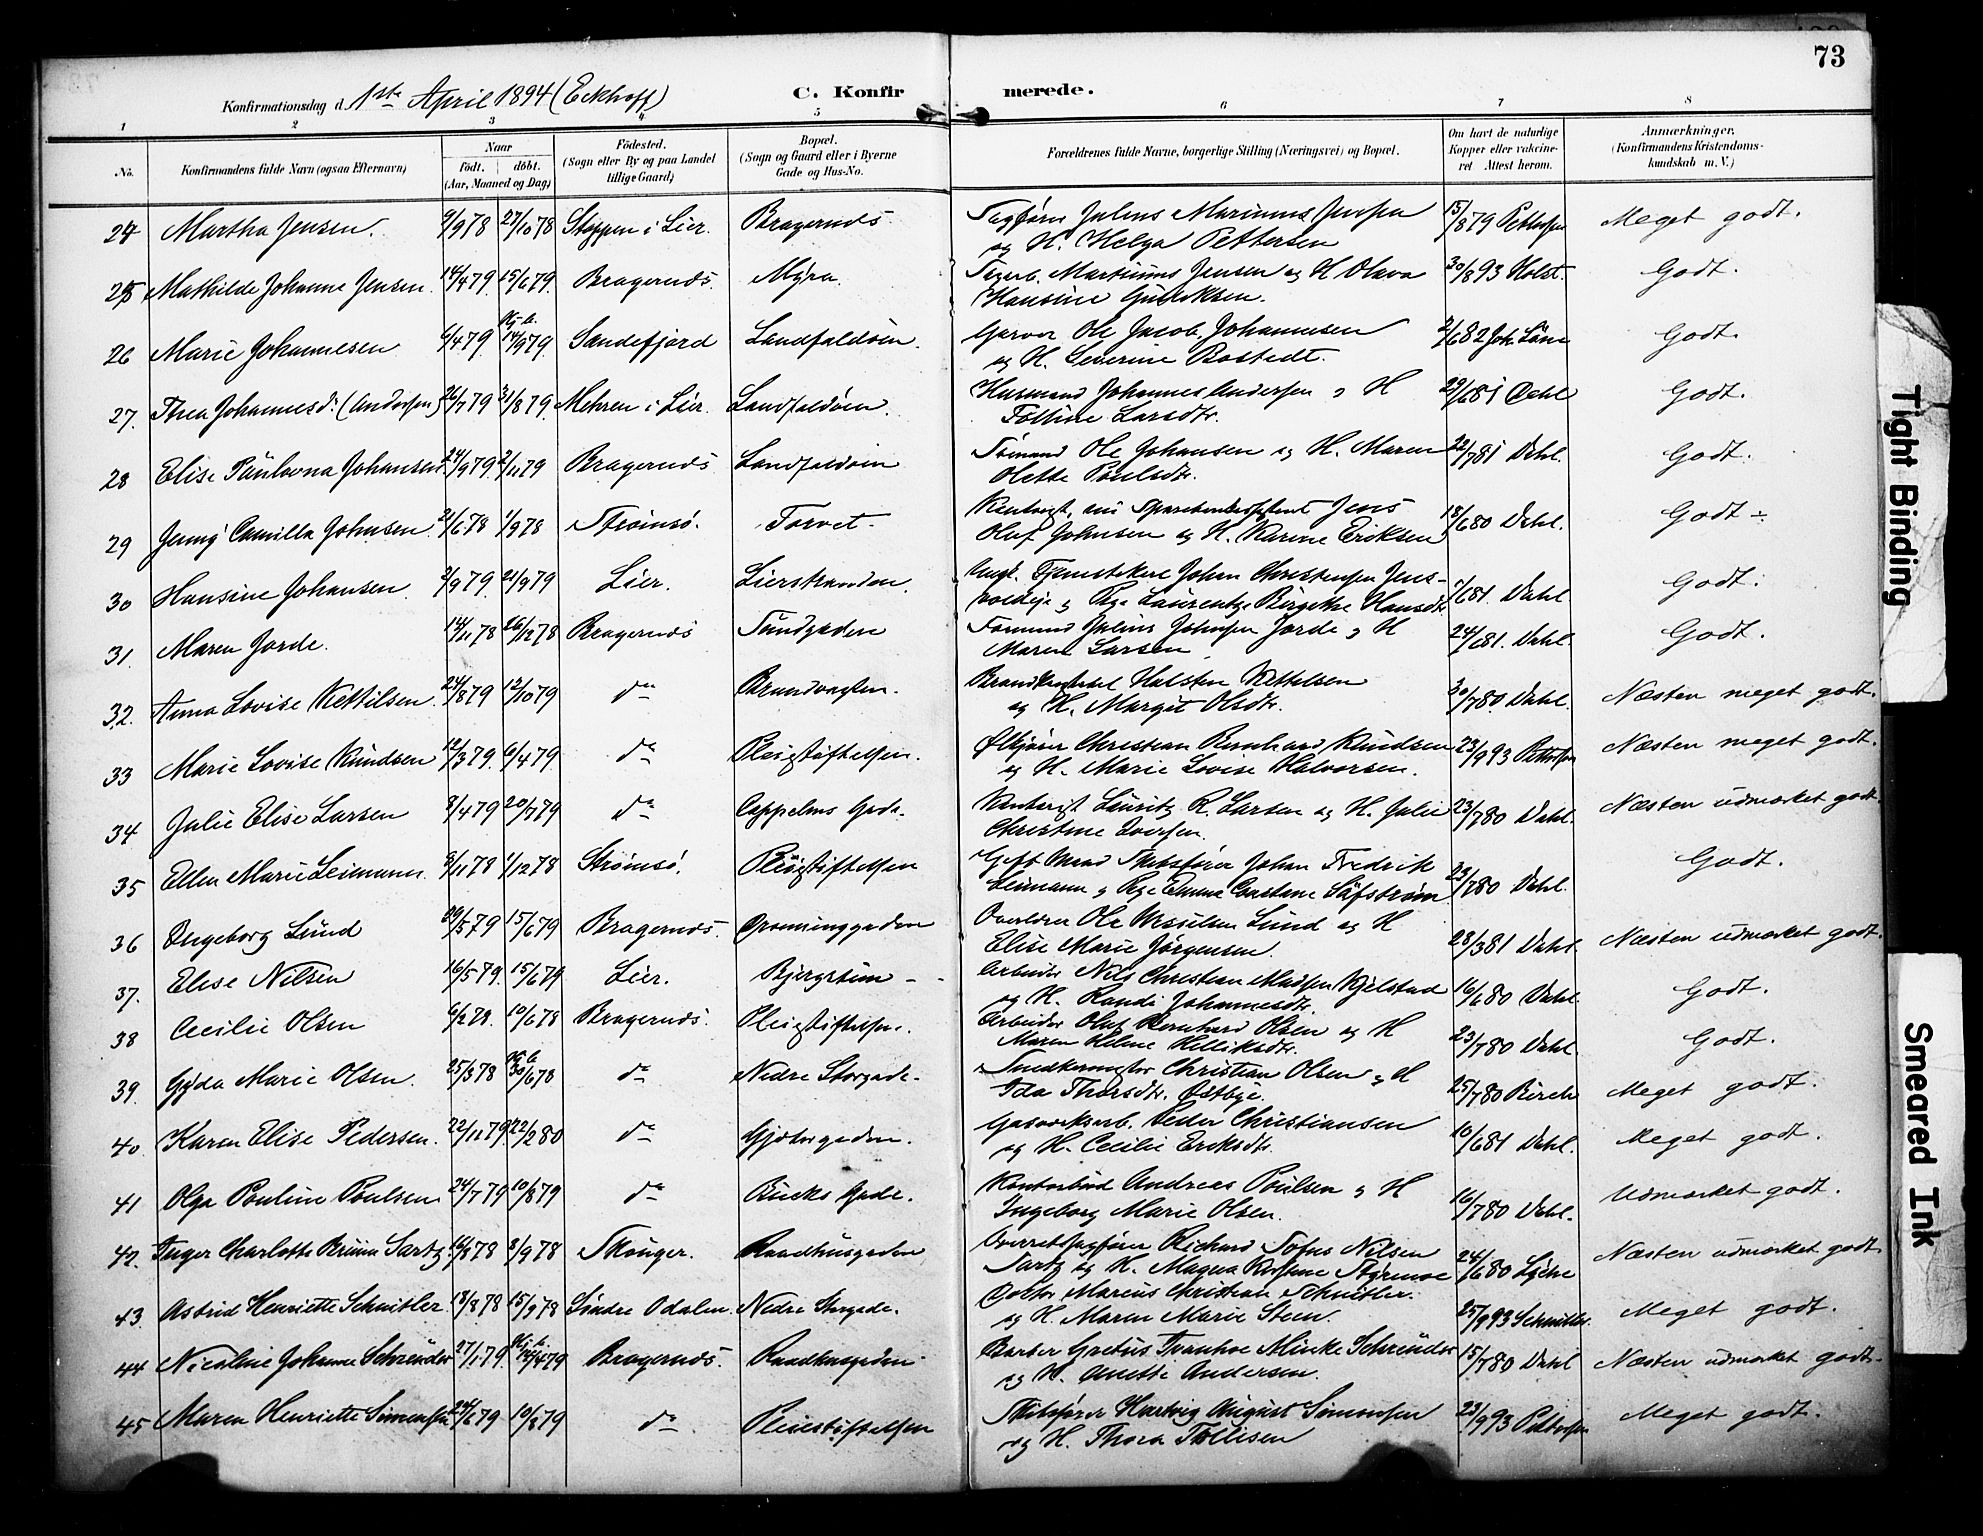 73
Konfirmationsdag d. 1ste April 1894 (Eckhoff) C. Konfirmerede.
1 2 3 4 5 6 7 8
No. Konfirmandens fulde Navn (ogsaa Efternavn) Naar født. døbt. (Aar, Maaned og Dag) Fødested. (Sogn eller By og paa Landet tillige Gaard) Bopæl. (Sogn og Gaard eller i Byerne Gade og Hus-No. Forældrenes fulde Navne, borgerlige Stilling (Næringsvei) og Bopæl. Om havt de naturlige Kopper eller vaccineret Attest herom. Anmærkninger, (Konfirmandens Kristendomskundskab m. V.)
24 Martha Jensen. 9/9 78 27/10 78 Stoppen i Lier. Bragernæs Julius Marinius Jensen 15/8 79 Pettersen Meget godt.
og H. Helga Pettersen
25 Mathilde Johanne Jensen 14/4 79 15/6 79. Bragernæs. Myra. Martinius Jensen og H Olava 30/8 93 Holst. Godt.
Hansine Gulliksen.
26 Marie Johannesen 6/4 79 14/9 79. Sandefjord Landfaldøien. Garver Ole Jacob Johannesen 2/6 82 Godt.
og H. Severine Bostedt.
27. Thea Johannesd: (Andersen) 26/7 79 31/8 79. Mehren i Lier. Landfaldøien. Husmand Johannes Andersen og H 29/6 81 Dahl Godt.
Larsdtr.
28 Elise Paulovna Johansen 24/9 79. 2/11 79 Bragernæs Landfaldøien Ole Johansen og H. Maren 22/7 81 Dahl. Godt.
Olette Poulsdtr.
29 Jenny Camilla Johnsen. 21/6 78 1/9 78 Strømsø. Torvet. Jens 18/6 80 Dahl. Godt ÷
Oluf Johnsen og H. Karine Eriksen
30 Hansine Johansen 2/9 79 21/9 79 Lier. Lierstranden. Johan Christensen 1/6 81. Dahl Godt.
og Pige Laurentze Birgithe Hansdtr
31. Maren Jorde. 14/11 78 26/12 78 Bragernæs Sundgaden Formand Julius Johnsen Jorde og H 24/6 81. Dahl. Godt.
Maren Larsen
32. Anna Lovise Kettilsen. 24/8 79 12/10 79 do Brandvagten. Brandkonstabel Halsten Kettelsen 30/7 80. Dahl. Næsten meget godt.
og H. Margit Olsdtr.
33 Marie Lovise Knudsen 12/3 79. 6/4 79 do Pleiestiftelsen. Christian Bernhard Knudsen 23/9 93 Pettersen Næsten meget godt.
og H. Marie Lovise Halvorsen.
34 Julie Elise Larsen 3/4 79 20/7 79 do Cappelens Gade. Lauritz R. Larsen og H. Julie 23/7 80 Dahl. Næsten udmærket godt.
Christine Iversen.
35 Ellen Marie Leimann. 3/11 78 1/12 78 Strømsø. Pleiestiftelsen Gift Mand Skibsfører Johan Fredrik 23/7 80 Dahl. Godt.
Leimann og Pige Emma Säfström
36 Ingeborg Lund 15/6 79 Bragernæs. Ole Lund og H 28/3 81 Dahl. Næsten udmærket godt.
Elise Marie Jørgensen.
37. Elise Nilsen 16/5 79. 15/6 79 Lier. Arbeider Nils Christian Madsen Kjelstad 16/6 80 Dahl. Godt.
og H. Randi Johannesdtr.
38 Cecilie Olsen 6/2 78. 10/6 78 Bragernæs. Pleiestiftelsen. Arbeider Oluf Bernhard Olsen og H 23/7 80 Dahl. Godt.
Maren Helene Helliksdtr.
39. Gyda Marie Olsen. 25/3 78 30/6 78 do Nedre Storgade. Snedkermester Christian Olsen og H 25/7 80 Birch Meget godt.
Ida Thorsdtr. Østbye.
40 Karen Elise Pedersen. 22/11 79 22/2 80 do Gjetergaden. Gasværksarb. Peder Christiansen 10/6 81 Dahl. Meget godt.
og H. Cecilie Eriksdtr.
41 Olga Pauline Poulsen. 24/7 79 10/8 79 do Buchs Gade. Kontorbud Andreas Poulsen og H 16/7 80 Dahl. Udmærket godt.
Ingeborg Marie Olsen.
42. Inger Charlotte Bruun Sartz 8 78 3/9 78 Skouger. Raadhusgaden Overretssagfører Richard Tofus Nilsen 24/6 80 Næsten udmærket godt.
Sartz og H. Magna
43. Astrid Henriette Schnitler. 18/8 78 15/9 78 Søndre Odalen. Nedre Storgade. Doktor Marcus Christian Schnitler. 25/9 93 Schnitler. Meget godt.
og H. Maren Marie Steen.
44 Nicoline Johanne Schrøuder 27/1 79. 4 79 Bragernæs. Raadhusgaden Barber Ivanhoe Minke Schreuder 15/7 80 Dahl Næsten udmærket godt.
og H. Anette Andersen.
45 Maren Henriette Simonsen 6 79 10/8 79 do Pleiestiftelsen Skibsfører Hartvig August Simonsen 23/9 93 Pettersen Meget godt.
og H. Thora Tollisen
Tight Binding
Smeared Ink